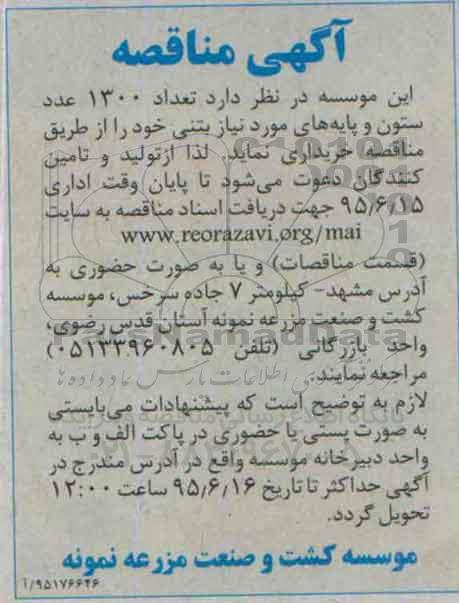 آگهی مناقصه
این موسسه در نظر دارد تعداد ۱۳۰۰ عدد
ستون و پایه‌های مورد نیاز بتنی خود را از طریق
مناقصه خریداری نماید. لذا ازتولید و تامین
کنندگان دعوت می‌شود تا پایان وقت اداری
۹۵/۶/۱۵ جهت دریافت اسناد مناقصه به سایت
www.reorazavi.org/mai
(قسمت مناقصات) و یا به صورت حضوری به
آدرس مشهد- کیلومتر ۷ جاده سرخس، موسسه
کشت و صنعت مزرعه نمونه آستان قدس رضوی،
واحد بازرگانی (تلفن ۰۵۱۳۳۹۶۰۸۰۵)
مراجعه نمایند.
لازم به توضیح است که پیشنهادات می‌بایستی
به صورت پستی یا حضوری در پاکت الف و ب به
واحد دبیرخانه موسسه واقع در آدرس مندرج در
آگهی حداکثر تا تاریخ ۹۵/۶/۱۶ ساعت ۱۲:۰۰
تحویل گردد.
موسسه کشت و صنعت مزرعه نمونه
۹۵۱۷۶۶۴۶/آ